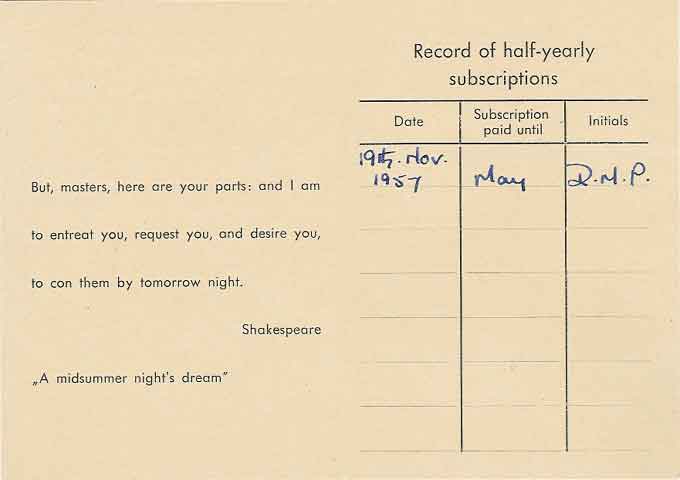 But, masters, here are your parts: and I am
to entreat you, request you, and desire you,
to con them by tomorrow night.
Shakespeare
„A midsummer night's dream"
Record of half-yearly
subscriptions
Date
Subscription
paid until
Initials
19th. Nov.
1957
May
D.M.P.